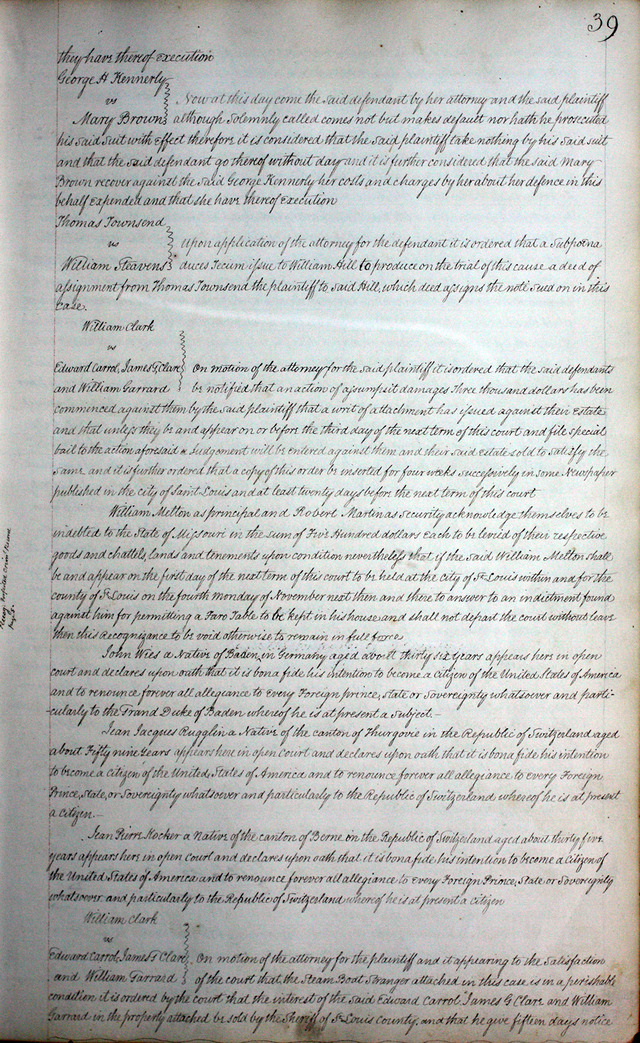 39
they have thereof execution
George H Kennerly
vs Now at this day come the said defendant by her attorney and the said plaintiff
Mary Brown although solemnly called comes not but makes default nor hath he prosecuted
his said suit with effect therefore it is considered that the said plaintiff take nothing by his said suit
and that the said defendant go thereof without day and it is further considered that the said Mary
Brown recover against the said George Kennerly her costs and charges by her about her defence in this
behalf expended and that she have thereof execution
Thomas Townsend
vs Upon application of the attorney for the defendant it is ordered that a Subpœna
William Steavens duces Tecum issue to William Hill to produce on the trial of this cause a deed of
assignment from Thomas Townsend the plaintiff to said Hill, which deed assigns the note sued on in this
case.
William Clark
vs
Edward Carrol, James G. Clare On motion of the attorney for the said plaintiff it is ordered that the said defendants
and William Garrard be notified that an action of assumpsit damages Three thousand dollars has been
commenced against them by the said plaintiff that a writ of attachment has issued against their estate
and that unless they be and appear on or before the third day of the next term of this court and file special
bail to the action aforesaid Judgement will be entered against them and their said estate sold to satisfy the
same and it is further ordered that a copy of this order be inserted for four weeks successively in some Newspaper
published in the city of Saint Louis and at least twenty days before the next term of this court
William Melton as principal and Robert Martin as Security acknowledge themselves to be
indebted to the State of Missouri in the sum of Five Hundred dollars Each to be levied of their respective
goods and chattels, lands and tenements upon condition nevertheless that if the said William Melton shall
be and appear on the first day of the next term of this court to be held at the city of St Louis within and for the
county of St Louis on the fourth monday of November next then and there to answer to an indictment found
against him for permitting a Faro Table to be kept in his house and shall not depart the court without leave
then this Recognizance to be void otherwise to remain in full force
John Wies a Native of Baden, in Germany aged about thirty six years appears here in open
court and declares upon oath that it is bona fide his intention to become a citizen of the United States of America
and to renounce forever all allegiance to every Foreign prince, State or Sovereignty whatsoever and parti-
cularly to the Grand Duke of Baden whereof he is at present a Subject.-
Jean Jacques Rugglin a Native of the canton of Thurgovie in the Republic of Switzerland aged
about Fifty nine Years appears here in open court and declares upon oath that it is bona fide his intention
to become a citizen of the United States of America and to renounce forever all allegiance to every Foreign
Prince, State, or Sovereignty whatsoever and particularly to the Republic of Switzerland whereof he is at present
a citizen.-
Jean Pierre Hocker a Native of the canton of Berne in the Republic of Switzerland aged about thirty five
years appears here in open court and declares upon oath that it is bona fide his intention to become a citizen of
the United States of America and to renounce forever all allegiance to every Foreign Prince, State or Sovereignty
whatsoever and particularly to the Republic of Switzerland whereof he is at present a citizen
William Clark
vs
Edward Carrol, James G Clare On motion of the attorney for the plaintiff and it appearing to the Satisfaction
and William Garrard of the court that the Steam Boat Stranger attached in this case is in a perishable
condition it is ordered by the court that the interest of the Said Edward Carrol James G. Clare and William
Garrard in the property attached be sold by the Sheriff of St Louis County, and that he give fifteen days notice